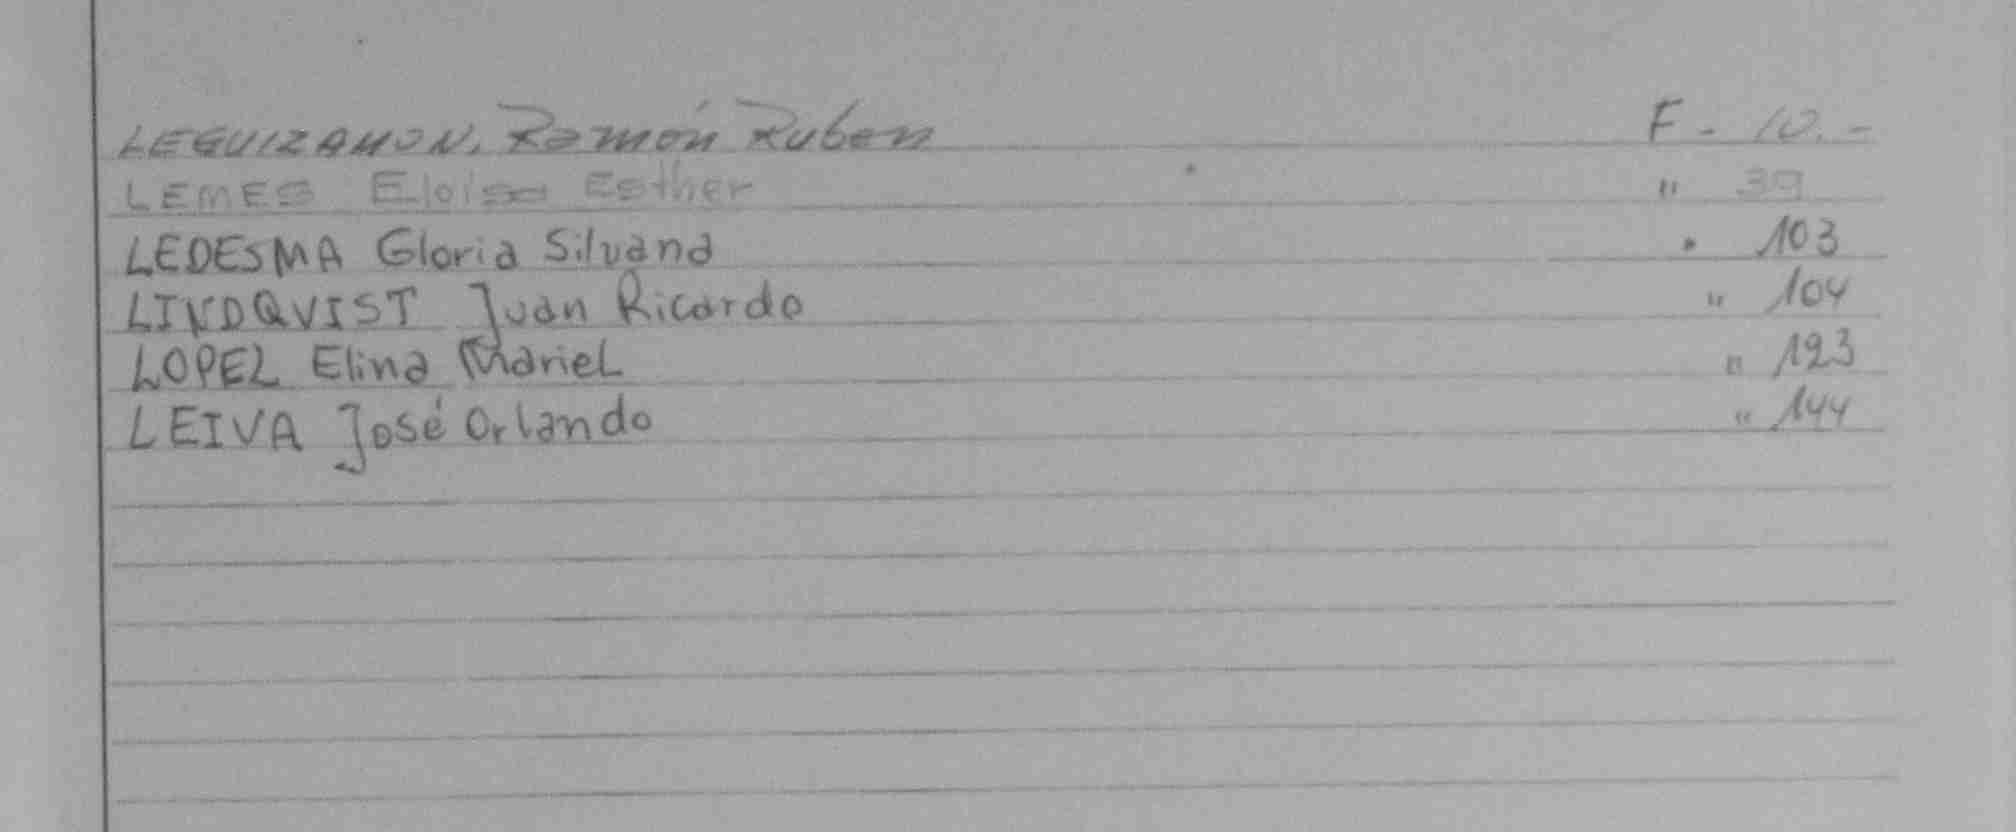 LEGUIZAMON, Ramón Ruben F - 10.-
LEMES Eloisa Esther " 39
LEDESMA Gloria Silvana " 103
LINDQVIST Juan Ricardo " 104
LOPEZ Elina Mariel " 123
LEIVA José Orlando " 144